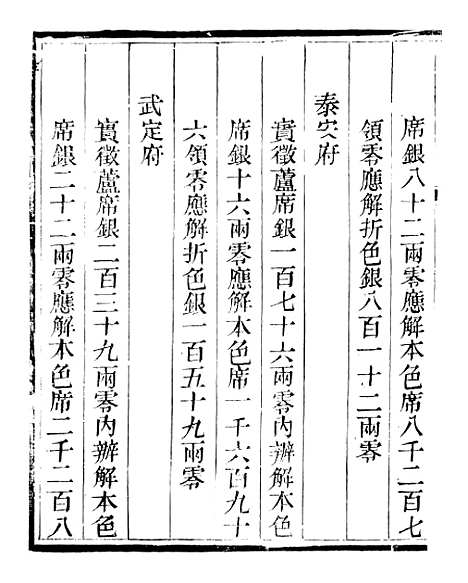 席銀八十二兩零應解本色席八千二百七
領零應解折色銀八百一十二兩零
泰安府
實徵蘆席銀一百七十六兩零內辦解本色
席銀十六兩零應解本色席一千六百九十
六領零應解折色銀一百五十九兩零
武定府
實徵蘆席銀二百三十九兩零內辦解本色
席銀二十二兩零應解本色席二千二百八